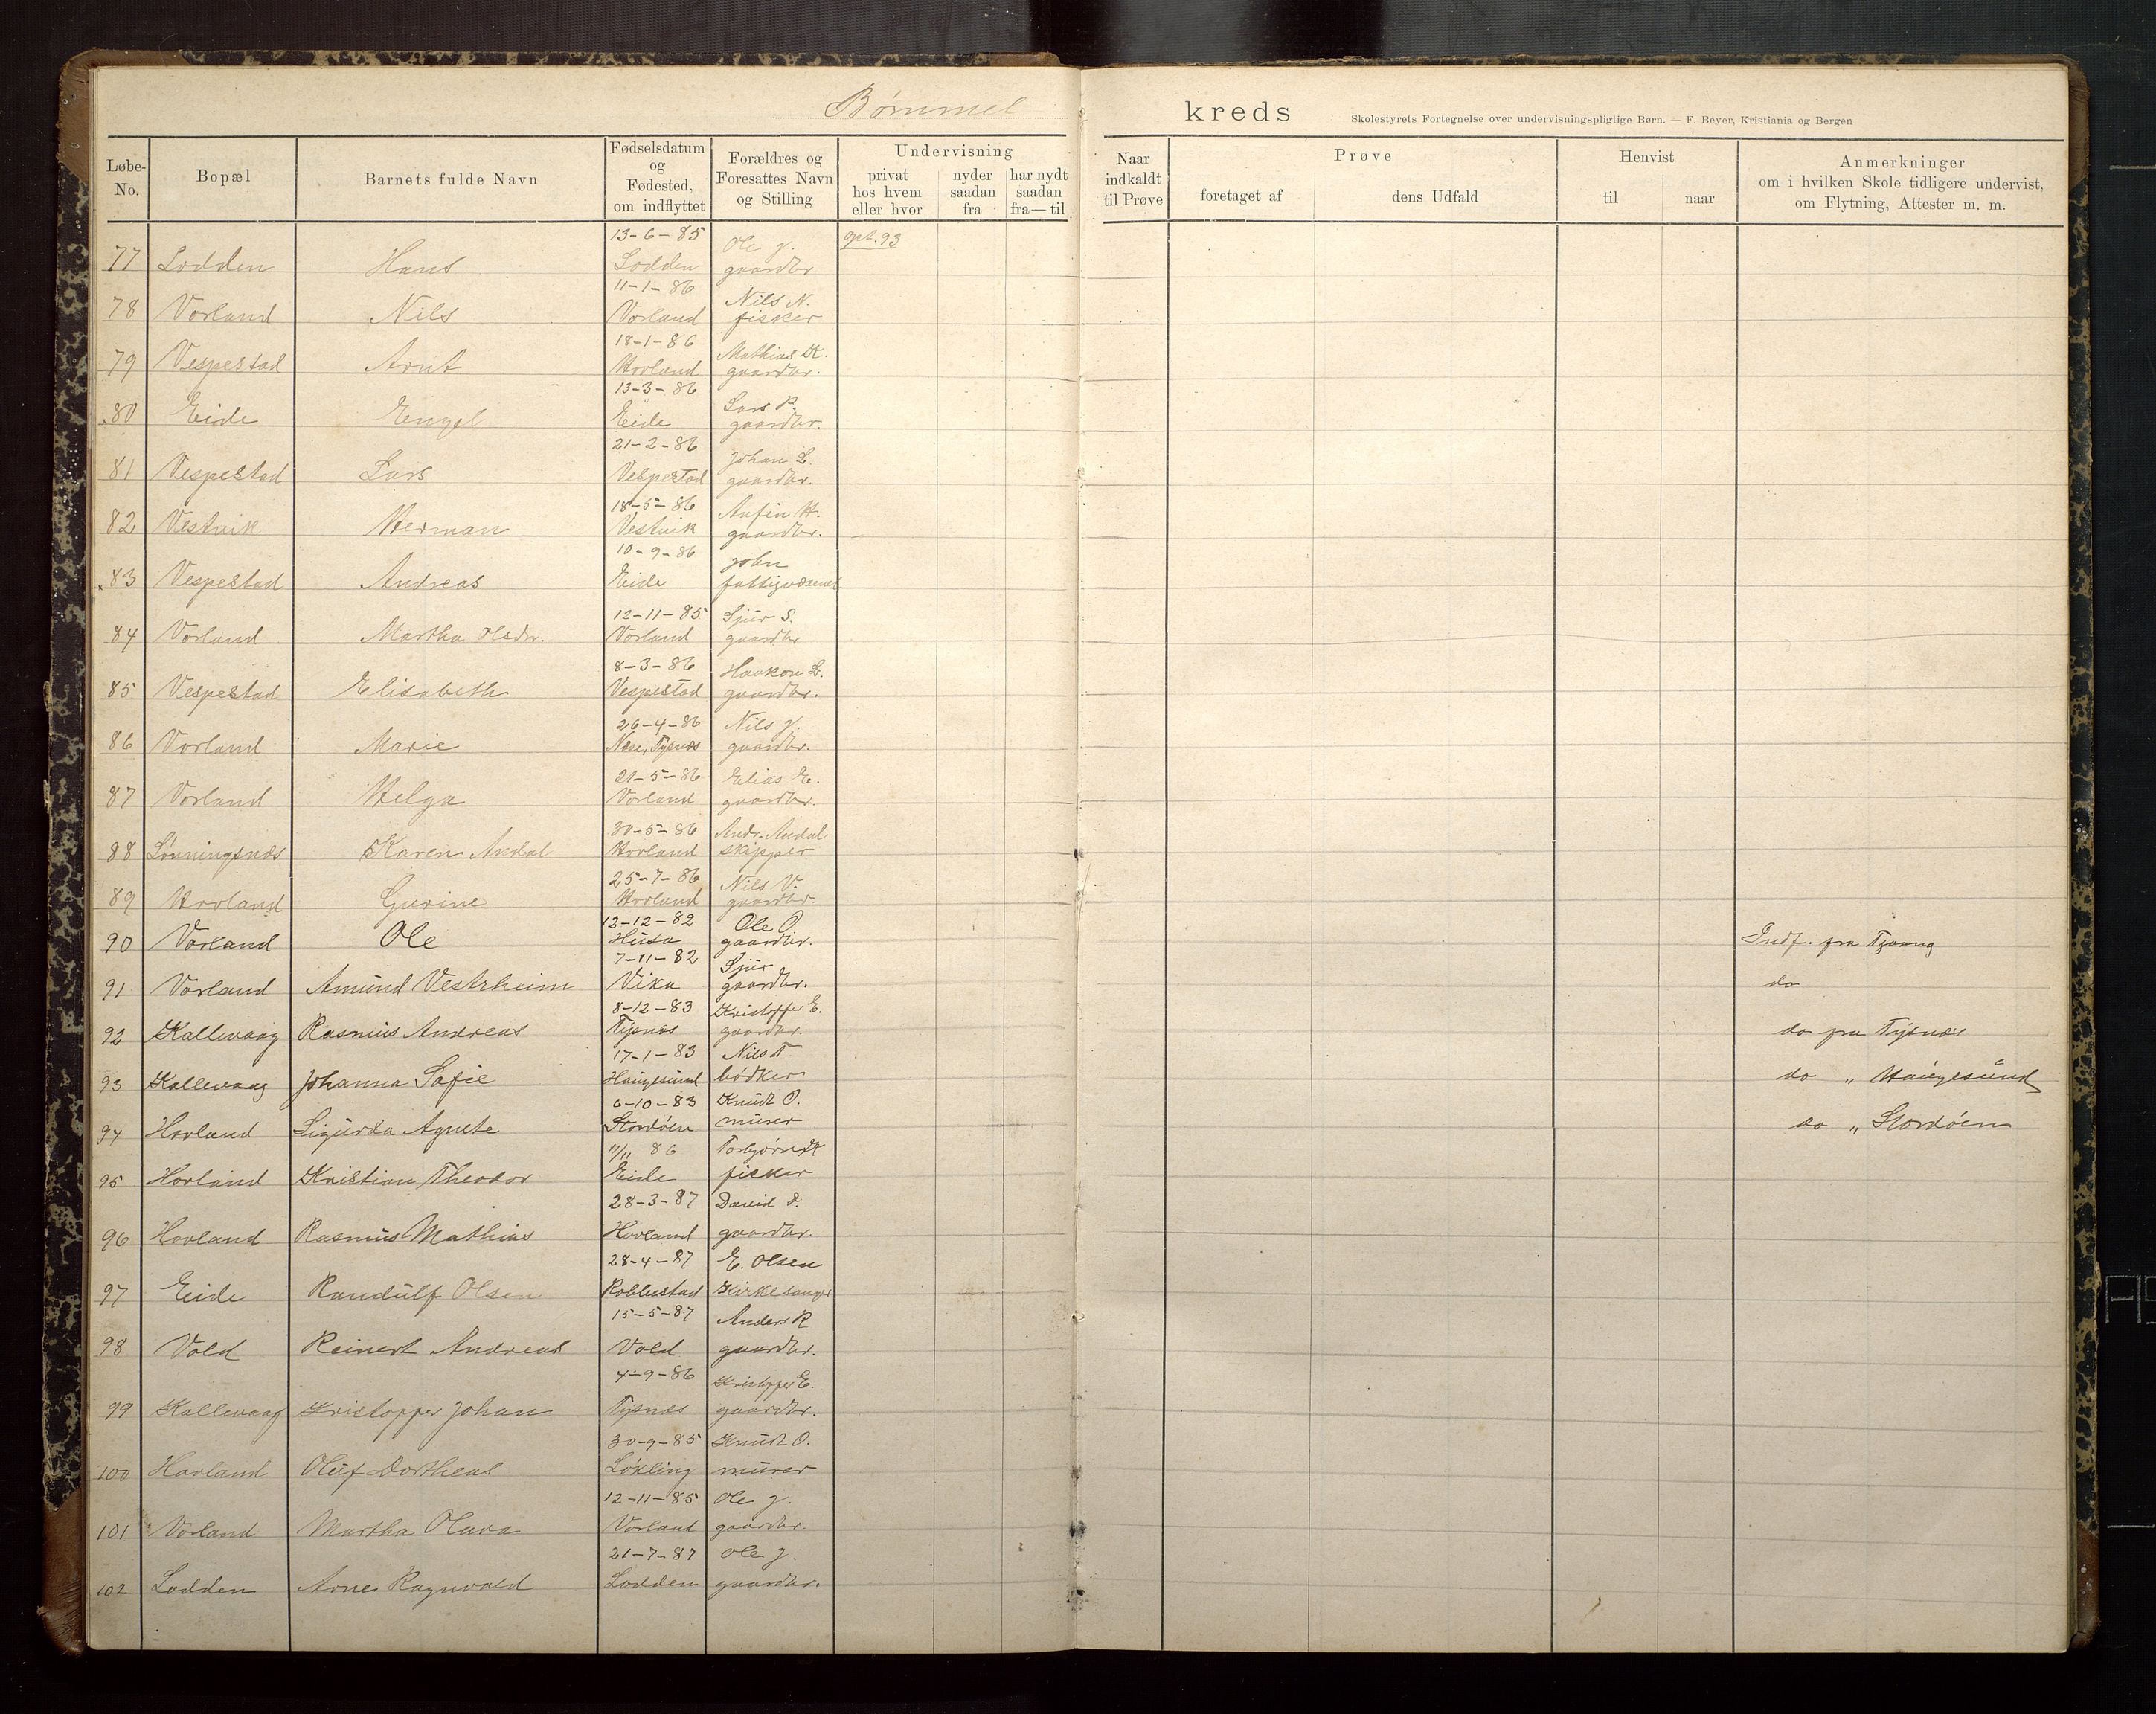 Bømmel kreds
Skolestyrets Fortegnelse over undervisningspligtige Børn. — F. Beyer, Kristiania og Bergen
Løbe-No. Bopæl Barnets fulde Navn Fødselsdatum og Fødested, om indflyttet Forældres og Foresattes Navn og Stilling Undervisning privat hos hvem eller hvor nyder saadan fra har nydt saadan fra — til Naar indkaldt til Prøve Prøve foretaget af dens Udfald Henvist til naar Anmerkninger om i hvilken Skole tidligere undervist, om Flytning, Attester m. m.
13-6-85 Ole J. 93
77 Lodden Hans Lodden gaardbr
11-1-86 Nils N.
78 Vorland Nils Vorland fisker
18-1-86 Mathias K.
79 Vespestad Arnt Hovland gaardbr.
13-3-86 Lars P.
80 Eide Engel Eide gaardbr.
21-2-86 Johan L.
81 Vespestad Lars Vespestad gaardbr.
18-5-86 Anfin H.
82 Vestvik Herman Vestvik gaardbr.
10-9-86 John
83 Vespestad Andreas Eide fattigvæsenet
12-11-85 Sjur S.
84 Vorland Martha Olsdr. Vorland gaardbr
8-3-86 Haakon L.
85 Vespestad Elisabeth Vespestad gaardbr.
26-4-86 Nils J.
86 Vorland Marie Næse, Tysnæs gaardbr.
21-5-86 Elias E.
87 Vorland Helga Vorland gaardbr.
30-5-86 Andr. Andal
88 Lønningsnæs Karen Andal Hovland skipper
25-7-86 Nils V.
89 Hovland Gurine Hovland gaardbr.
12-12-82 Ole O.
90 Vorland Ole Husa gaardbr. Indf. fra Tjoang
7-11-82 Sjur
91 Vorland Amund Vestrheim Vika gaardbr. do
8-12-83 Kristoffer E.
92 Kallevaag Rasmus Andreas Tysnæs gaardbr. do fra Tysnæs
17-1-83 Nils T
93 Kallevaag Johanna Sofie Haugesund bødker do „ Haugesund
6-10-83 Knudt O.
94 Hovland Sigurda Agnete Stordøen murer do „ Stordøen
11/11 86 Torbjørn K
95 Hovland Kristian Theodor Eide fisker
28-3-87 David D.
96 Hovland Rasmus Mathias Hovland gaardbr.
28-4-87 E. Olsen
97 Eide Randulf Olsen Roblestad Kirkesanger
15-5-87 Anders R
98 Vold Reinert Andreas Vold gaardbr.
4-9-86 Kristoffer E.
99 Kallevaag Kristoffer Johan Tysnæs gaardbr.
30-9-85 Knudt O.
100 Hovland Oluf Dortheus Løkling murer
12-11-85 Ole J.
101 Vorland Martha Olava Vorland gaardbr.
21-7-87 Ole J.
102 Lodden Arne Ragnvald Lodden gaardbr.